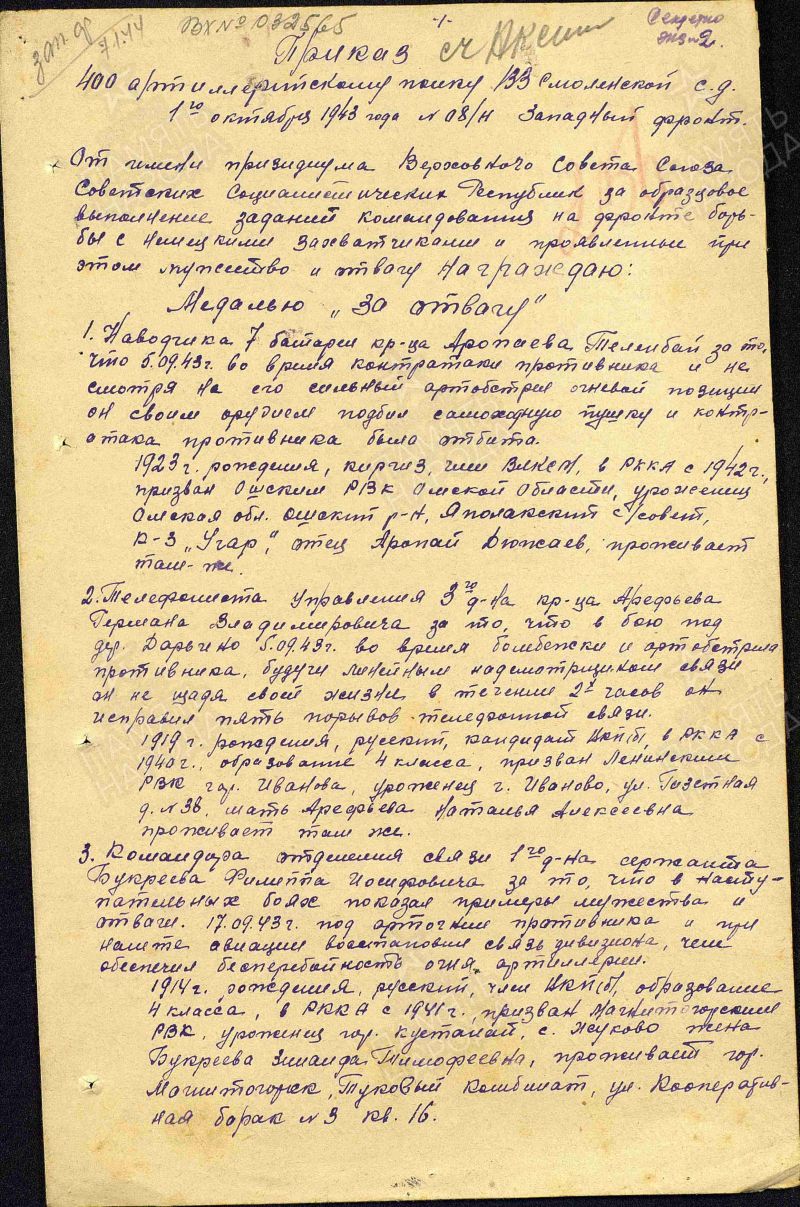 -1-
ВХ № 032565
Секретно
экз. №2.
зап. ф
7.1.44
Приказ
400 артиллерийскому полку 133 Смоленской с.д.
1го октября 1943 года № 08/н Западный фронт.
От имени призидиума Верховного Совета Союза
Советских Социалистических Республик за образцовое
выполнение заданий командования на фронте борь-
бы с немецкими захватчиками и проявленные при
этом мужество и отвагу награждаю:
Медалью „За отвагу"
1. Наводчика 7 батареи кр-ца Аропаева Теленбай за то,
что 5.09.43г. во время контратаки противника и не
смотря на его сильный артобстрел огневой позиции
он своим орудием подбил самоходную пушку и контр-
атака противника была отбита.
1923г. рождения, киргиз, член ВЛКСМ, в РККА с 1942г.,
призван Ошским РВК Омской области, уроженец
Омская обл. Ошский р-н, Яполакский с/совет,
к-з „Угар", отец Аропай Дюжаев, проживает
там-же.
2. Телефониста управления 3го д-на кр-ца Арефьева
Германа Владимировича за то, что в бою под
дер. Дарьино 5.09.43г. во время бомбежки и артобстрела
противника, будучи линейным надсмотрщиком связи
он не щадя своей жизни в течении 2х часов он
исправил пять порывов телефонной связи.
1919г. рождения, русский, кандидат ВКП(б), в РККА с
1940г., образование 4 класса, призван Ленинским
РВК гор. Иванова, уроженец г. Иваново, ул. Газетная
д. № 38, мать Арефьева Наталья Алексеевна
проживает там же.
3. Командира отделения связи 1го д-на сержанта
Букреева Филиппа Иосифовича за то, что в насту-
пательных боях показал примеры мужества и
отваги. 17.09.43г. под артогнем противника и при
налете авиации восстановил связь дивизиона, чем
обеспечил бесперебойность огня артиллерии.
1914г. рождения, русский, член ВКП(б), образование
4 класса, в РККА с 1941г., призван Магнитогорским
РВК, уроженец гор. Кустанай, с. Жуково жена
Букреева Зинаида Тимофеевна, проживает гор.
Магнитогорск, Туковый комбинат, ул. Кооператив-
ная барак № 3 кв. 16.